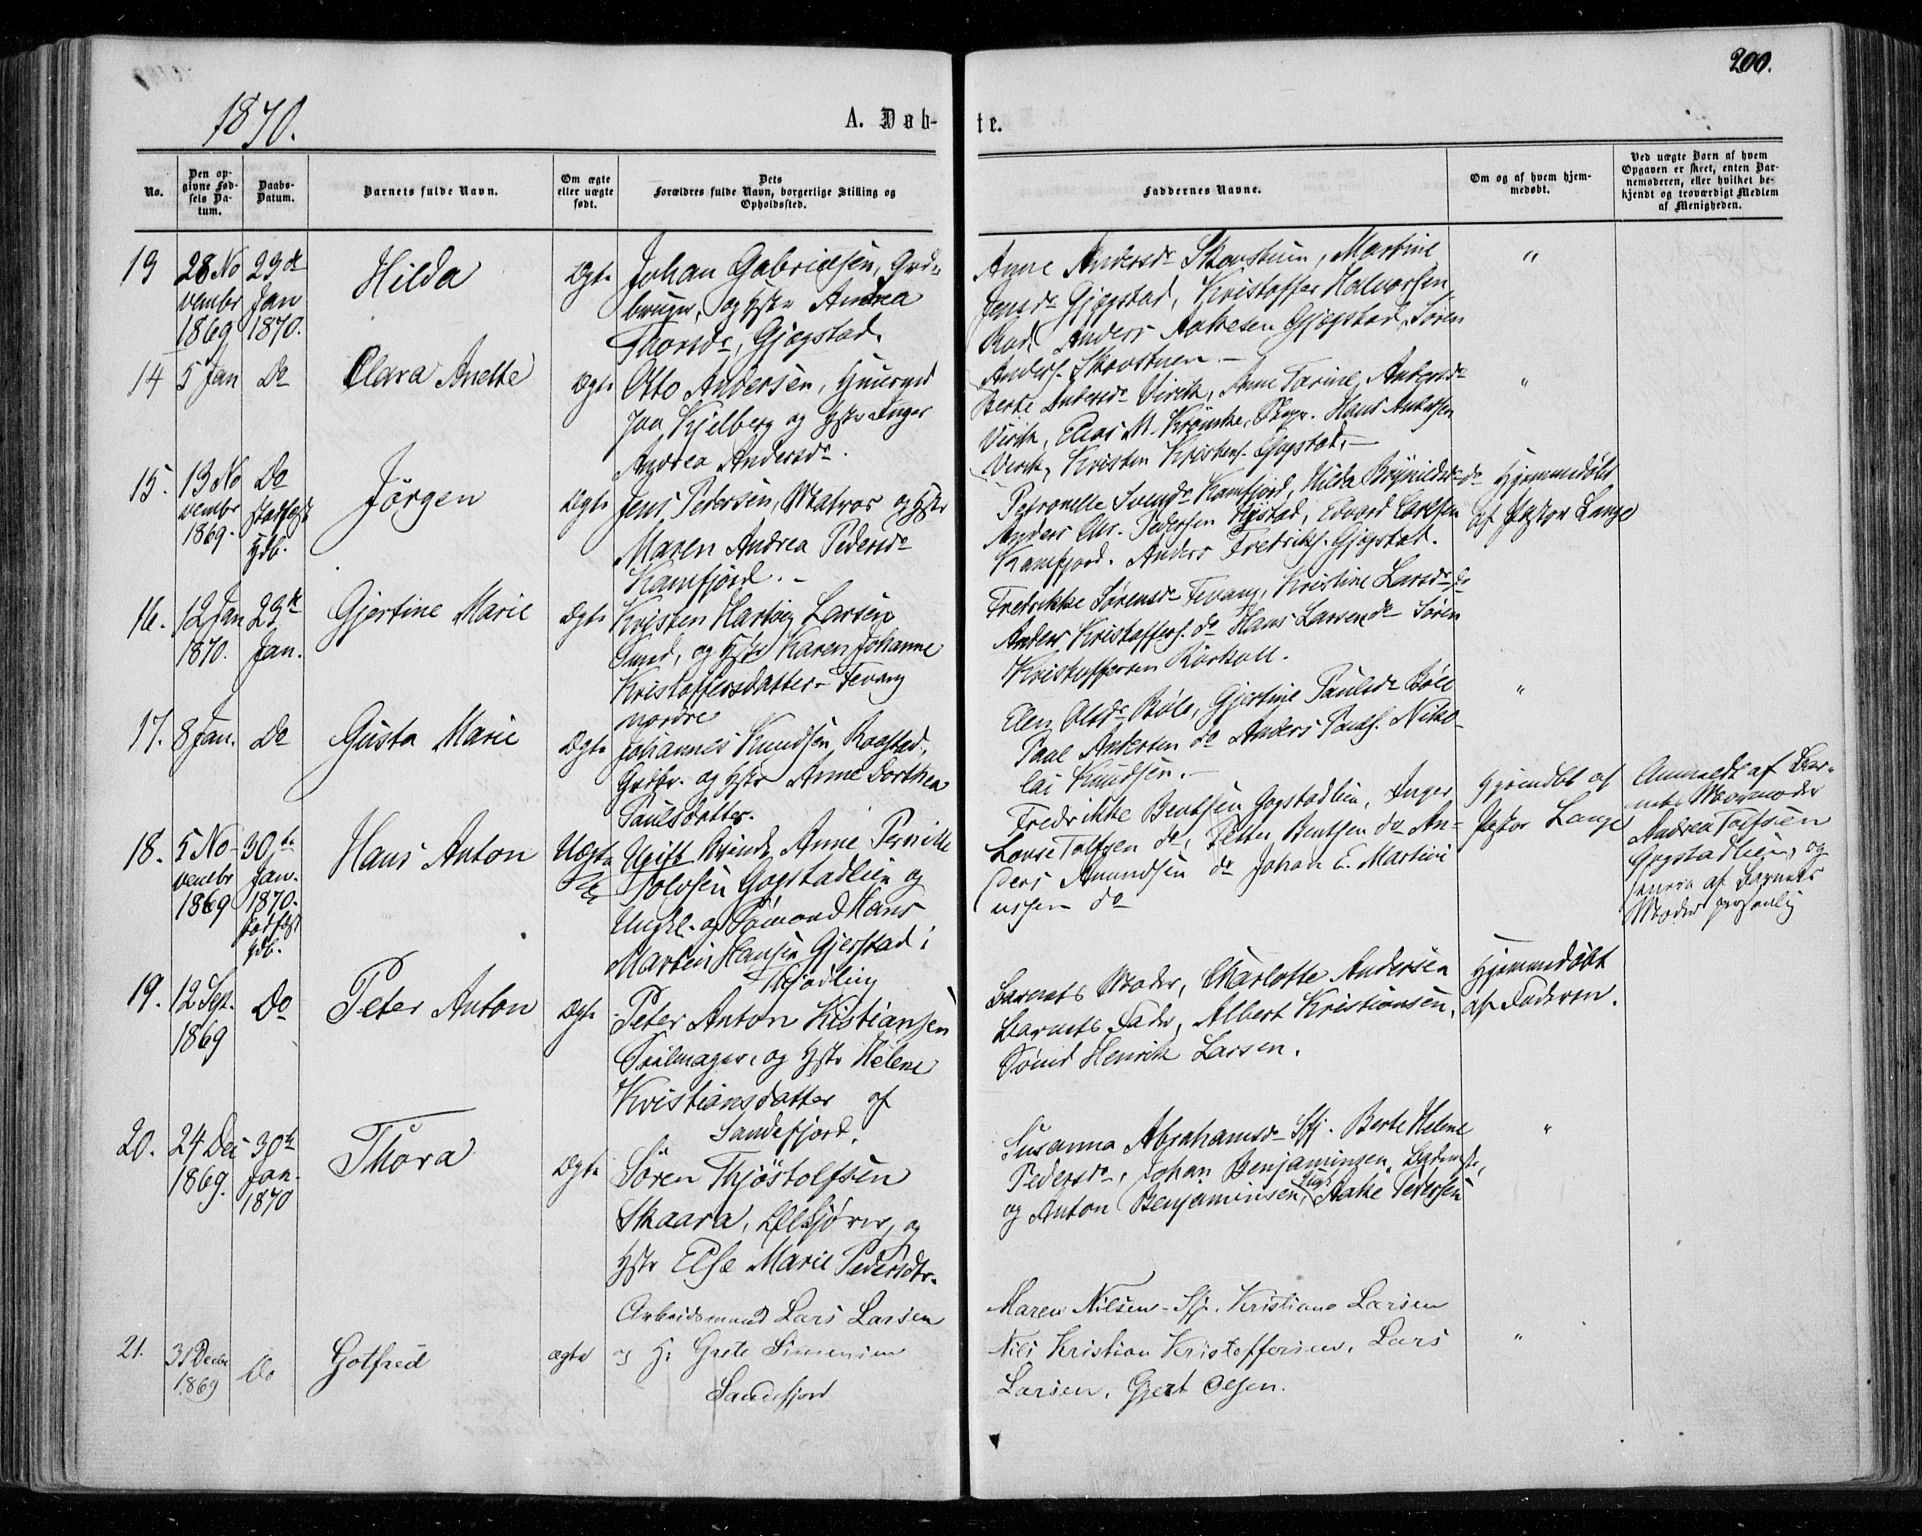 200.
1870.
A. Døb-
te.
No.
Den op-
givne Fød-
sels Da-
tum.
Daabs-
Datum.
Barnets fulde Navn.
Om ægte
eller uægte
født.
Dets
Forældres fulde Navn, borgerlige Stilling og
Opholdssted.
Faddernes Navne.
Om og af hvem hjem-
medøbt.
Ved uægte Børn af hvem
Opgaven er skeet, enten Bar-
nemoderen, eller hvilket be-
kjendt og troværdigt Medlem
af Menigheden.
13
28 No
vembr
1869
23de
Jan
1870.
Hilda
Ægte
Johan Gabrielsen, Grd-
bruger, og Hstr Andrea
Thorsdr, Gjøgstad.
Anne Andersdr Skovstuen, Martine
Jensdr Gjøgstad, Kristoffer Halvorsen
Rød, Anders Aakesen Gjøgstad, Søren
Anders. Skovstuen.-
"
14
5 Jan
Do
Clara Anette
Ægte
Otto Andersen, Huusmd
paa Kjelberg og Hstr Inger
Andrea Andersdr.
Berte Andersdr Virik, Anne Tarine Andersdr
Virik, Elias M. Hans Andersen
Virik, Kristen Kristens. Gogstad.-
"
15.
13 No
vembr
1869.
Do
stadfæst
Hdb.
Jørgen
Ægte
Jens Pedersen, Matros og Hstr
Maren Andrea Pedersdr
Kamfjord.-
Petronelle Svendsdr Kamfjord, Hilda Brynildsdr do
Anders Chr. Pedersen Nystad, Edvard Carlsen
Kamfjord. Anders Fredriks. Gjøgstad.
Hjemmedøbt
af Pastor Lange
16.
12 Jan
1870.
23de
Jan.
Gjertine Marie
Ægte
Kristen Hartvig Larsen
Smed, og Hstr Karen Johanne
Kristoffersdatter Fevang
nordre
Fredrikke Sørensdr Fevang, Kristine Larsdr do
Anders Kristoffers. do Hans Larsen do Søren
Kristoffersen Rørkoll.
"
17.
8 Jan.
Do
Gusta Marie
Ægte
Johannes Knudsen, Raastad,
Grdbr. og Hstr Anne Dorthea
Paulsdatter.
Elen Olsdr Bøle, Gjertine Paulsdr Bøle
Paul Andersen do Anders Pauls. Niko-
lai Knudsen.-
18.
5 No-
vembr
1869
30te
Jan.
1870.
stadfæst
Hdb.
Hans Anton
Uægte
Ugift Kvinde Anne Pernille
Tolvsen Gogstadlien og
Ungkl. og Sømand Hans
Martin Hansen Gjerstad i
Thjødling
Fredrikke Bentsen Gogstadlien, Inger
Lovise Tolfsen do, Petter Bentsen do An-
ders Amundsen do Johan E. Martini
ussen do
Hjemdbt af
Pastor Lange
Anmeldt af Bar-
nets Mormoder
Andrea Tolfsen
Gogstadlien, og
senere af Barnets
Moder personlig
19.
12 Sept.
1869
Do
Peter Anton
Ægte
Peter Anton Kistiansen
Seilmager, og Hstr Helene
Kristiansdatter af
Sandefjord.
Barnets Moder, Charlotte Andersen
Barnets Fader, Albert Kristiansen,
Sømd Henrik Larsen.
Hjemmedøbt
af Faderen.
20.
24 Dec
1869.
30te
Jan.
1870
Thora
Ægte
Søren Thjøstolfsen
Skaara, og
Hstr Else Marie Pedersdtr.
Susanna Abrahamsdr Sfj. Berte Helene
Pedersdr, Johan Benjaminsen,
og Anton Benjaminsen, Aake Pedersen
"
21.
31 Decbr
1869
Do
Gotfred
ægte
Arbeidsmand Lars Larsen
og H. Grete Simensen
Sandefjord
Maren Nilsen-Sfj. Kristiane Larsen
Nils Kristian Kristoffersen, Lars
Larsen, Gjert Olsen.
"